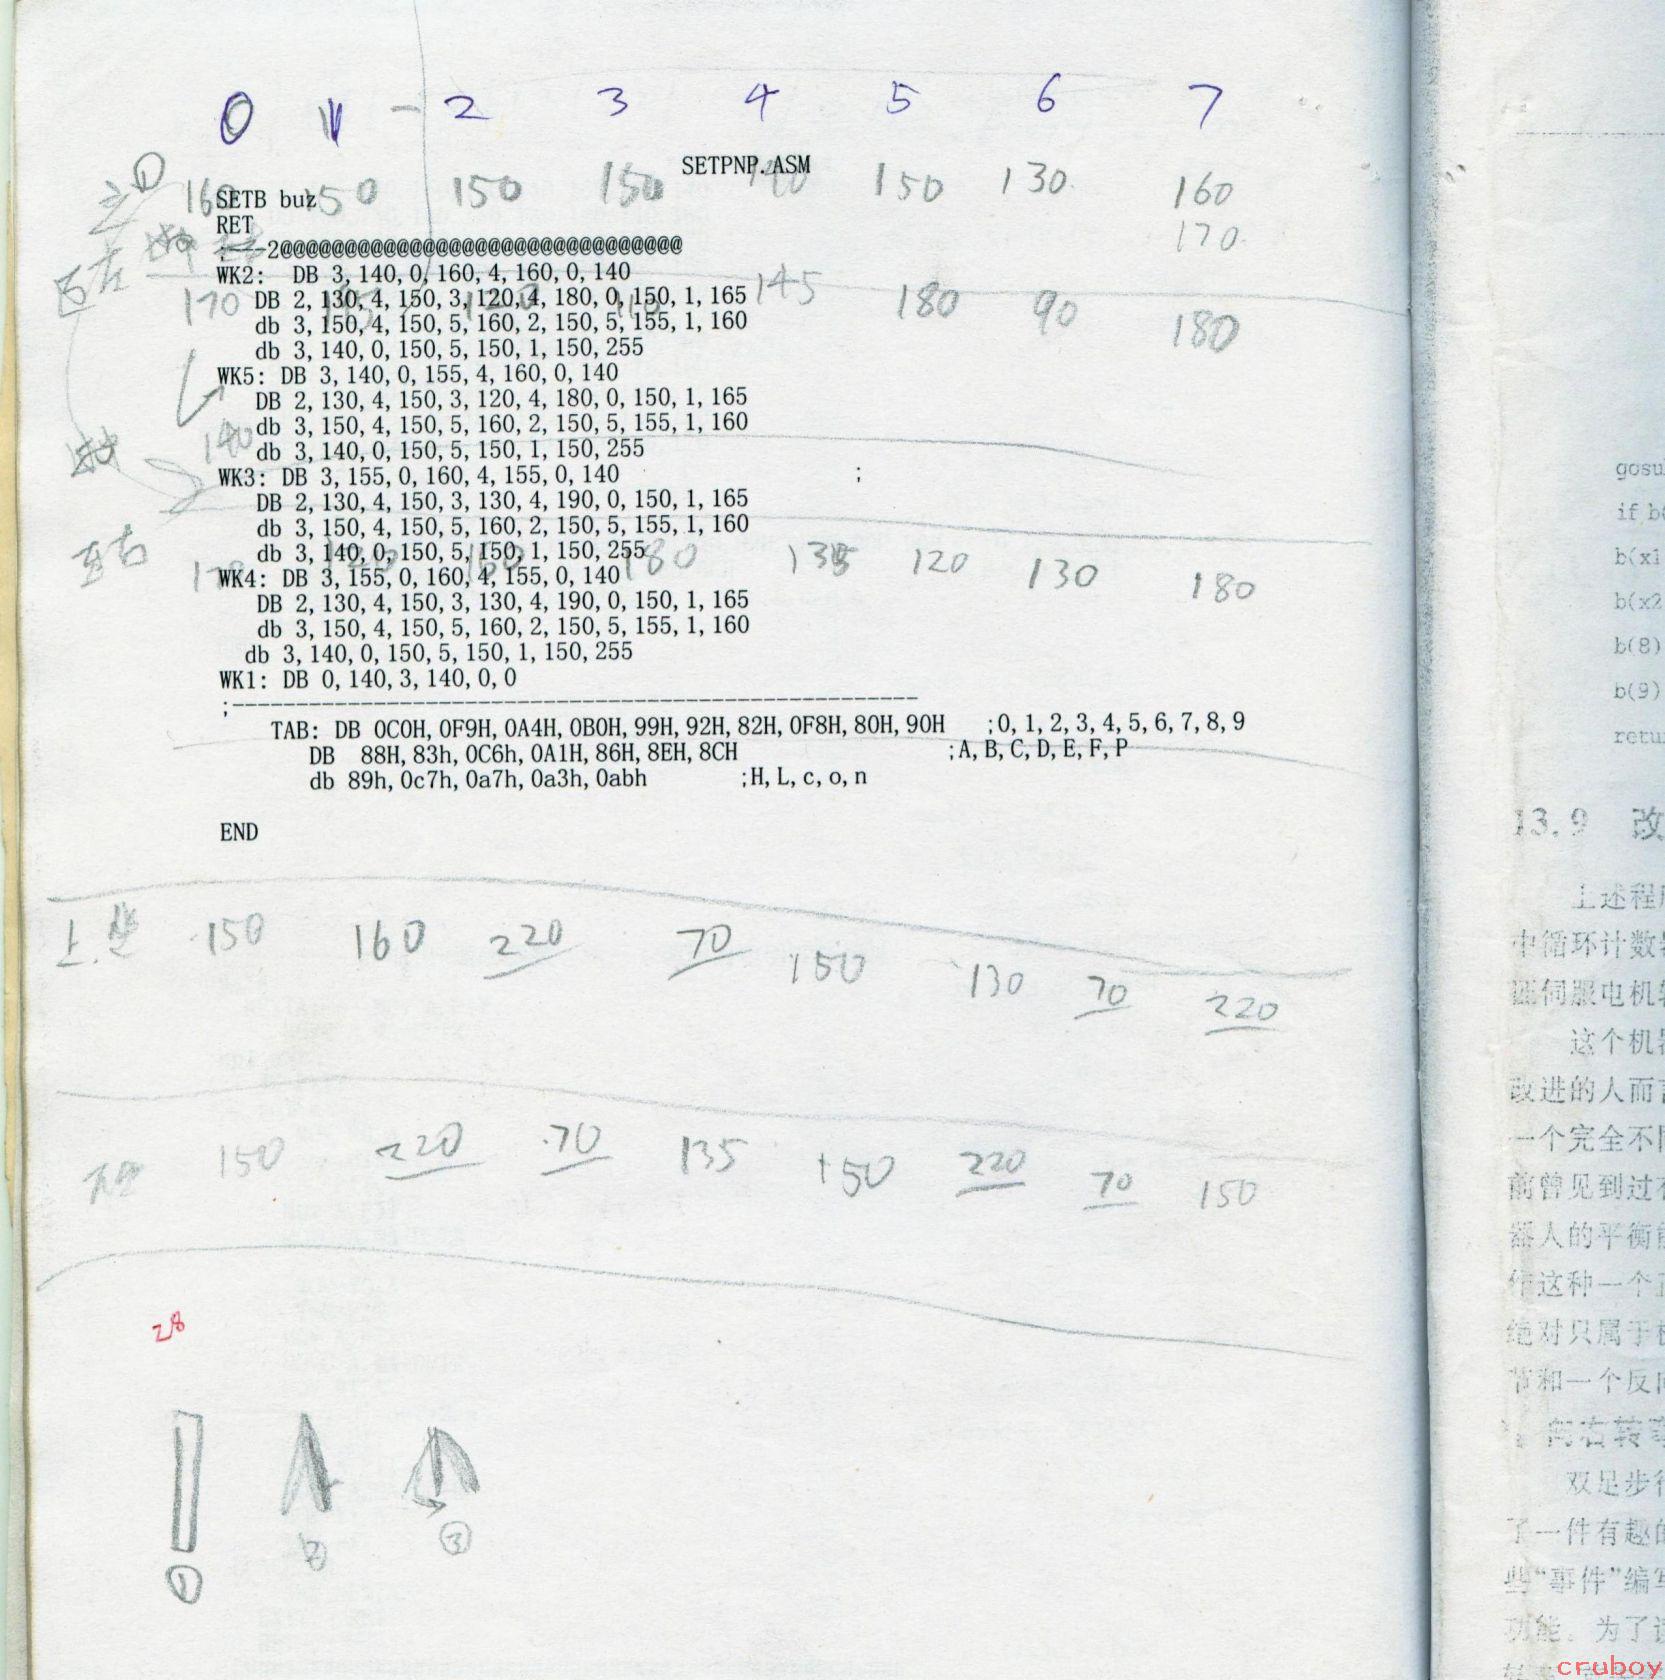 0 1 - 2 3 4 5 6 7
SETPNP.ASM
160 150 150 150 140 150 130 160
SETB buz
RET
170
;---2@@@@@@@@@@@@@@@@@@@@@@@@@@@@@@@@
WK2: DB 3,140,0,160,4,160,0,140
DB 2,130,4,150,3,120,4,180,0,150,1,165
170 145 180 90 180
db 3,150,4,150,5,160,2,150,5,155,1,160
db 3,140,0,150,5,150,1,150,255
WK5: DB 3,140,0,155,4,160,0,140
DB 2,130,4,150,3,120,4,180,0,150,1,165
db 3,150,4,150,5,160,2,150,5,155,1,160
140
db 3,140,0,150,5,150,1,150,255
WK3: DB 3,155,0,160,4,155,0,140 ;
DB 2,130,4,150,3,130,4,190,0,150,1,165
db 3,150,4,150,5,160,2,150,5,155,1,160
db 3,140,0,150,5,150,1,150,255
180 135 120 130 180
WK4: DB 3,155,0,160,4,155,0,140
DB 2,130,4,150,3,130,4,190,0,150,1,165
db 3,150,4,150,5,160,2,150,5,155,1,160
db 3,140,0,150,5,150,1,150,255
WK1: DB 0,140,3,140,0,0
;------------------------------------------------------
TAB: DB 0C0H,0F9H,0A4H,0B0H,99H,92H,82H,0F8H,80H,90H ;0,1,2,3,4,5,6,7,8,9
DB 88H,83h,0C6h,0A1H,86H,8EH,8CH ;A,B,C,D,E,F,P
db 89h,0c7h,0a7h,0a3h,0abh ;H,L,c,o,n
END
150 160 220 70 150 130 70 220
150 220 70 135 150 220 70 150
28
① 2 ③
gosu
if b
b(x1
b(x2
b(8)
b(9)
retu
13.9 改
上述程
中循环计数
伺服电机
这个机
改进的人而
一个完全不
前曾见到过
器人的平衡
作这种一个
绝对只属于
节和一个反
向右转
双足步
了一件有趣的
些“事件”编
功能。为了
cruboy